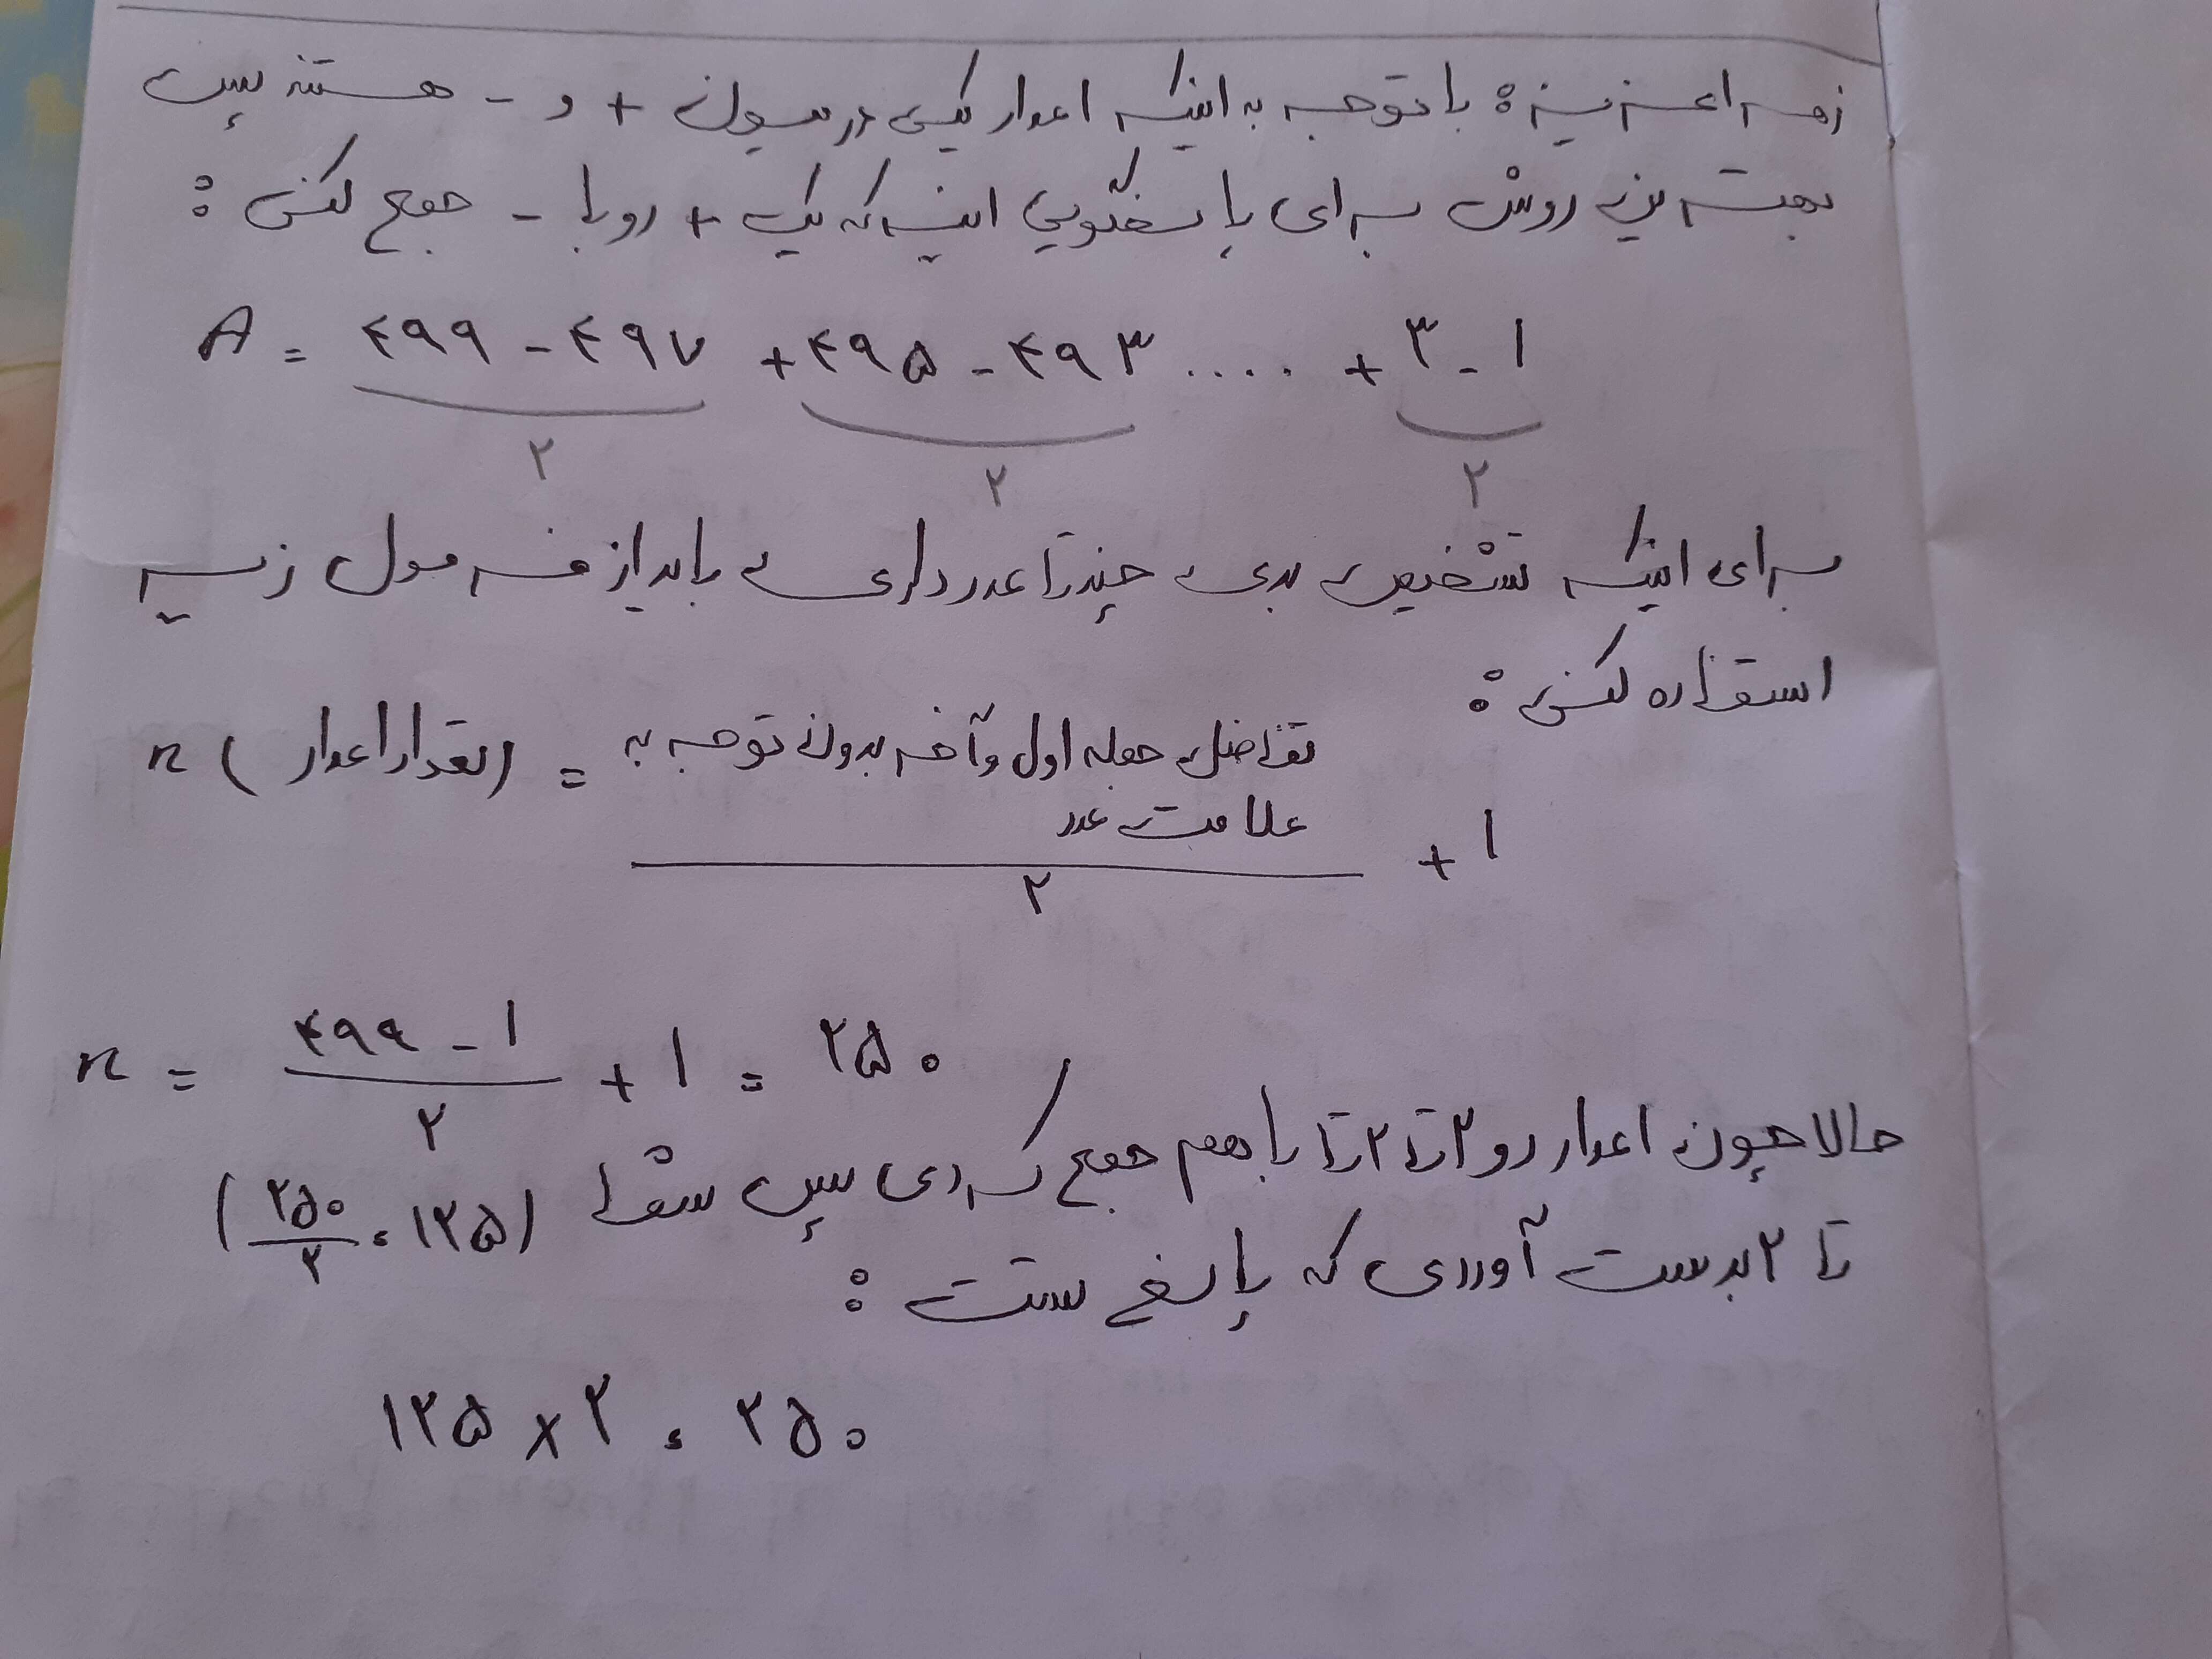 زهرا عزیزم : با توجه به اینکه اعداد یکی درمیون + و - هستند پس
بهترین روش برای پاسخگویی اینه که یک + رو با - جمع کنی :
A = ۴۹۹ - ۴۹۷ + ۴۹۵ - ۴۹۳ .... + ۳ - ۱
۲ ۲ ۲
برای اینکه تشخیص بدی چندتا عدد داری باید از فرمول زیر
استفاده کنی :
n (تعداد اعداد) = تفاضل جمله اول و آخر بدون توجه به
علامت عدد
+ ۱
۲
n = ۴۹۹ - ۱ / ۲ + ۱ = ۲۵۰
حالا چون اعداد رو ۲تا ۲تا با هم جمع کردی پس شما (۲۵۰ / ۲ = ۱۲۵)
تا ۲ بدست آوردی که پاسخ ست :
۱۲۵ × ۲ = ۲۵۰